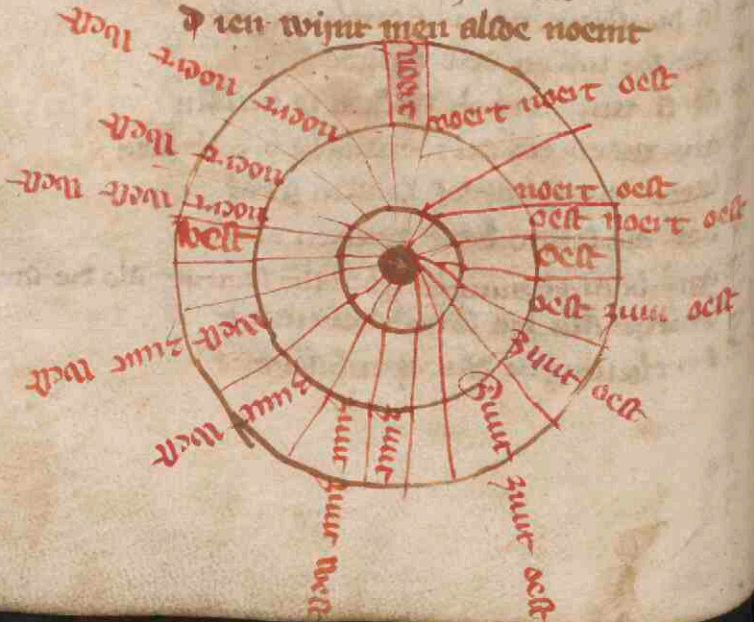 Dien wijnt men alsoe noemt
noert
noert noert oest
noert oest
oest noert oest
oest
oest zuut oest
zuut oest
zuut zuut oest
zuut
zuut zuut west
zuut west
west zuut west
west
noert west west
noert west
noert noert west